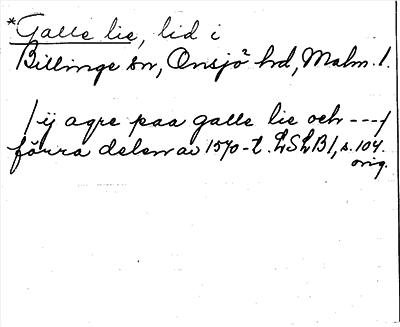 *Galle lie, lid i
Billinge sn, Onsjö hd, Malm. l.
/ ij agre paa galle lie och ---/
förra delen av 1570-t. LSLB1, s. 104.
orig.